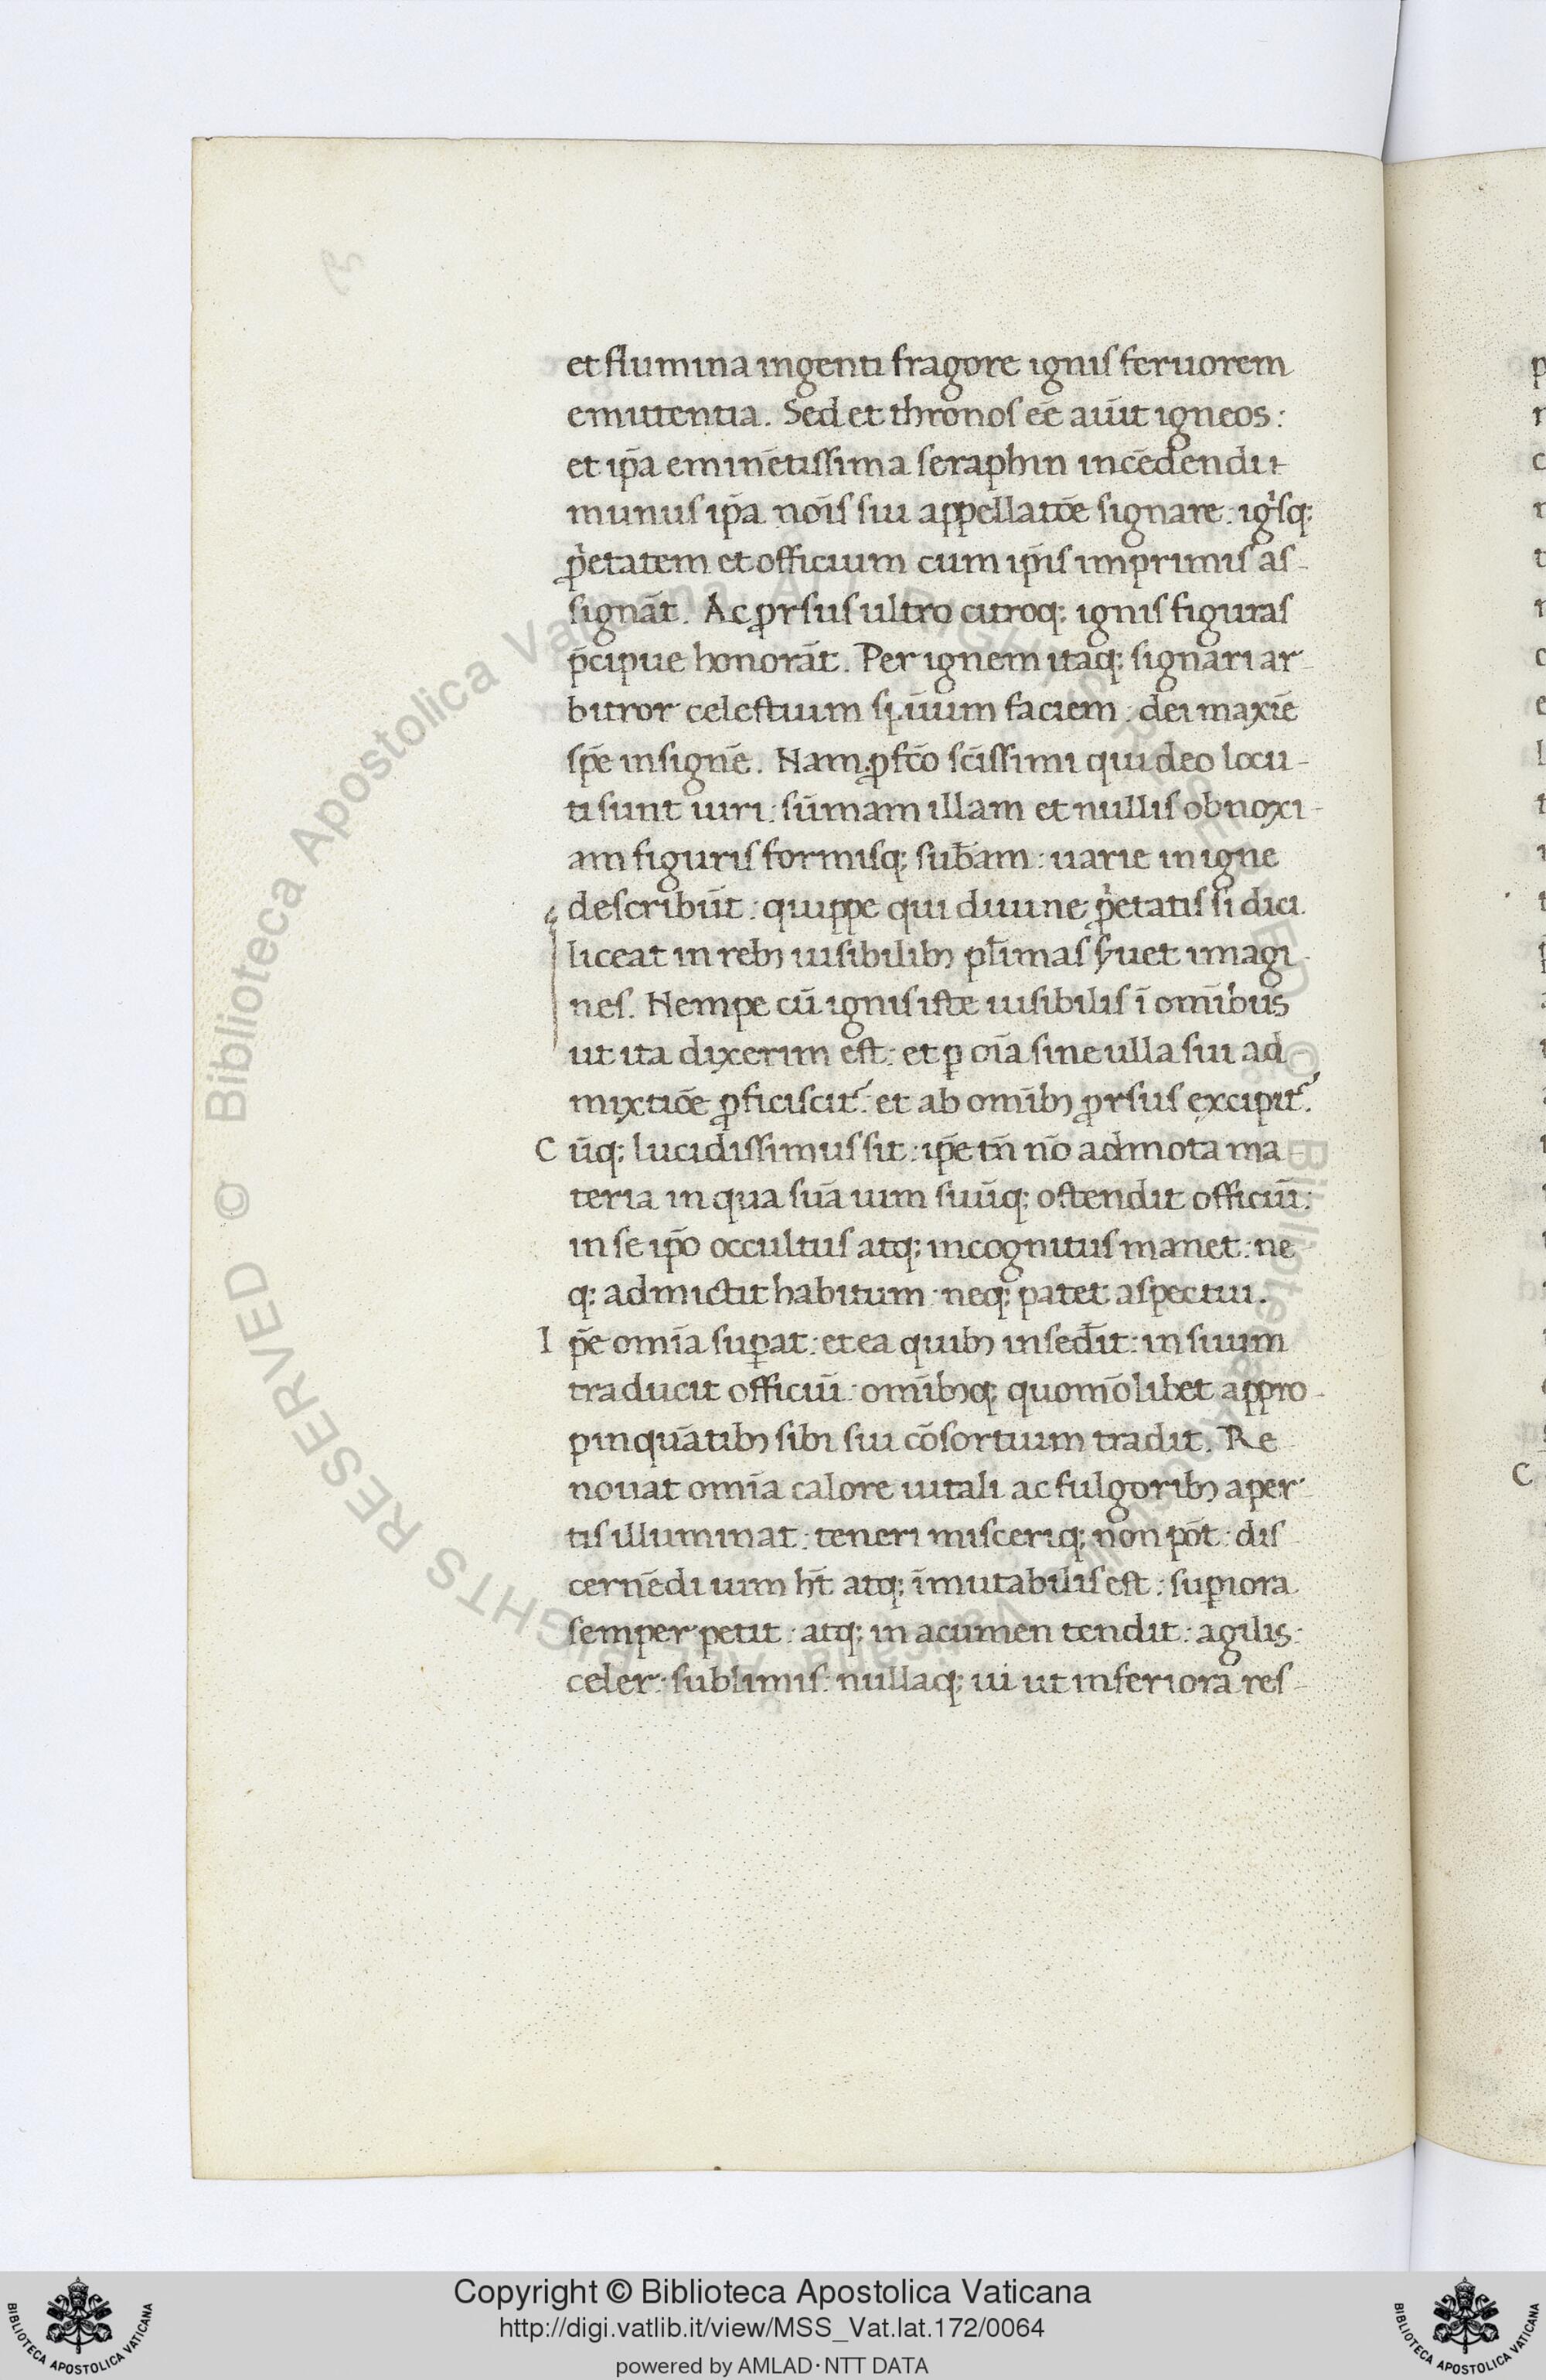 et flumina ingenti fragore ignis feruorem
emittentia. Sed et thronos eē aiūt igneos:
et ip̄a eminētissima seraphin incēdendi
munus ip̄a nōis sui appellatōe signare: igīsq;
ꝓ̍etatem et officium cum ip̄is imprimis as-
signāt. Ac ꝓrsus ultro citroq; ignis figuras
p̄cipue honorāt. Per ignem itaq; signari ar-
bitror celestium spūum faciem: dei maxīe
spē insignē. Nam ꝓfc̄o sc̄issimi qui deo locu-
ti sunt uiri: sūmam illam et nullis obnoxi-
am figuris formisq; sub̄am: uarie in igne
describūt: quippe qui diuine ꝓ̍etatis si dici
liceat in rebꝫ uisibilibꝫ pl̄imas ẜuet imagi-
nes. Nempe cū ignis iste uisibilis ī omībus
ut ita dixerim est: et ꝑ oīa sine ulla sui ad
mixtiōe ꝓficiscit᷑: et ab omībꝫ ꝓrsus excipit᷑.
Cūq; lucidissimus sit: ip̄e tn̄ nō admota ma-
teria in qua suā uim suūq; ostendit officiū:
in se ip̄o occultus atq; incognitus manet: ne
q; admictit habitum: neq; patet aspectui.
Ip̄e omīa suꝑat: et ea quibꝫ insed̄it: in suum
traducit officiū: omībꝫq; quomōlibet appro-
pinquātibꝫ sibi sui cōsortium tradit. Re
nouat omīa calore uitali ac fulgoribꝫ aper-
tis illuminat: teneri misceriq; non pōt: dis
cernēdi uim hт̄ atq; īmutabilis est: suꝑiora
semper petit: atq; in acumen tendit: agilis:
celer: sublimis: nullaq; ui ut inferiora res-
Copyright © Biblioteca Apostolica Vaticana
http://digi.vatlib.it/view/MSS_Vat.lat.172/0064
powered by AMLAD·NTT DATA